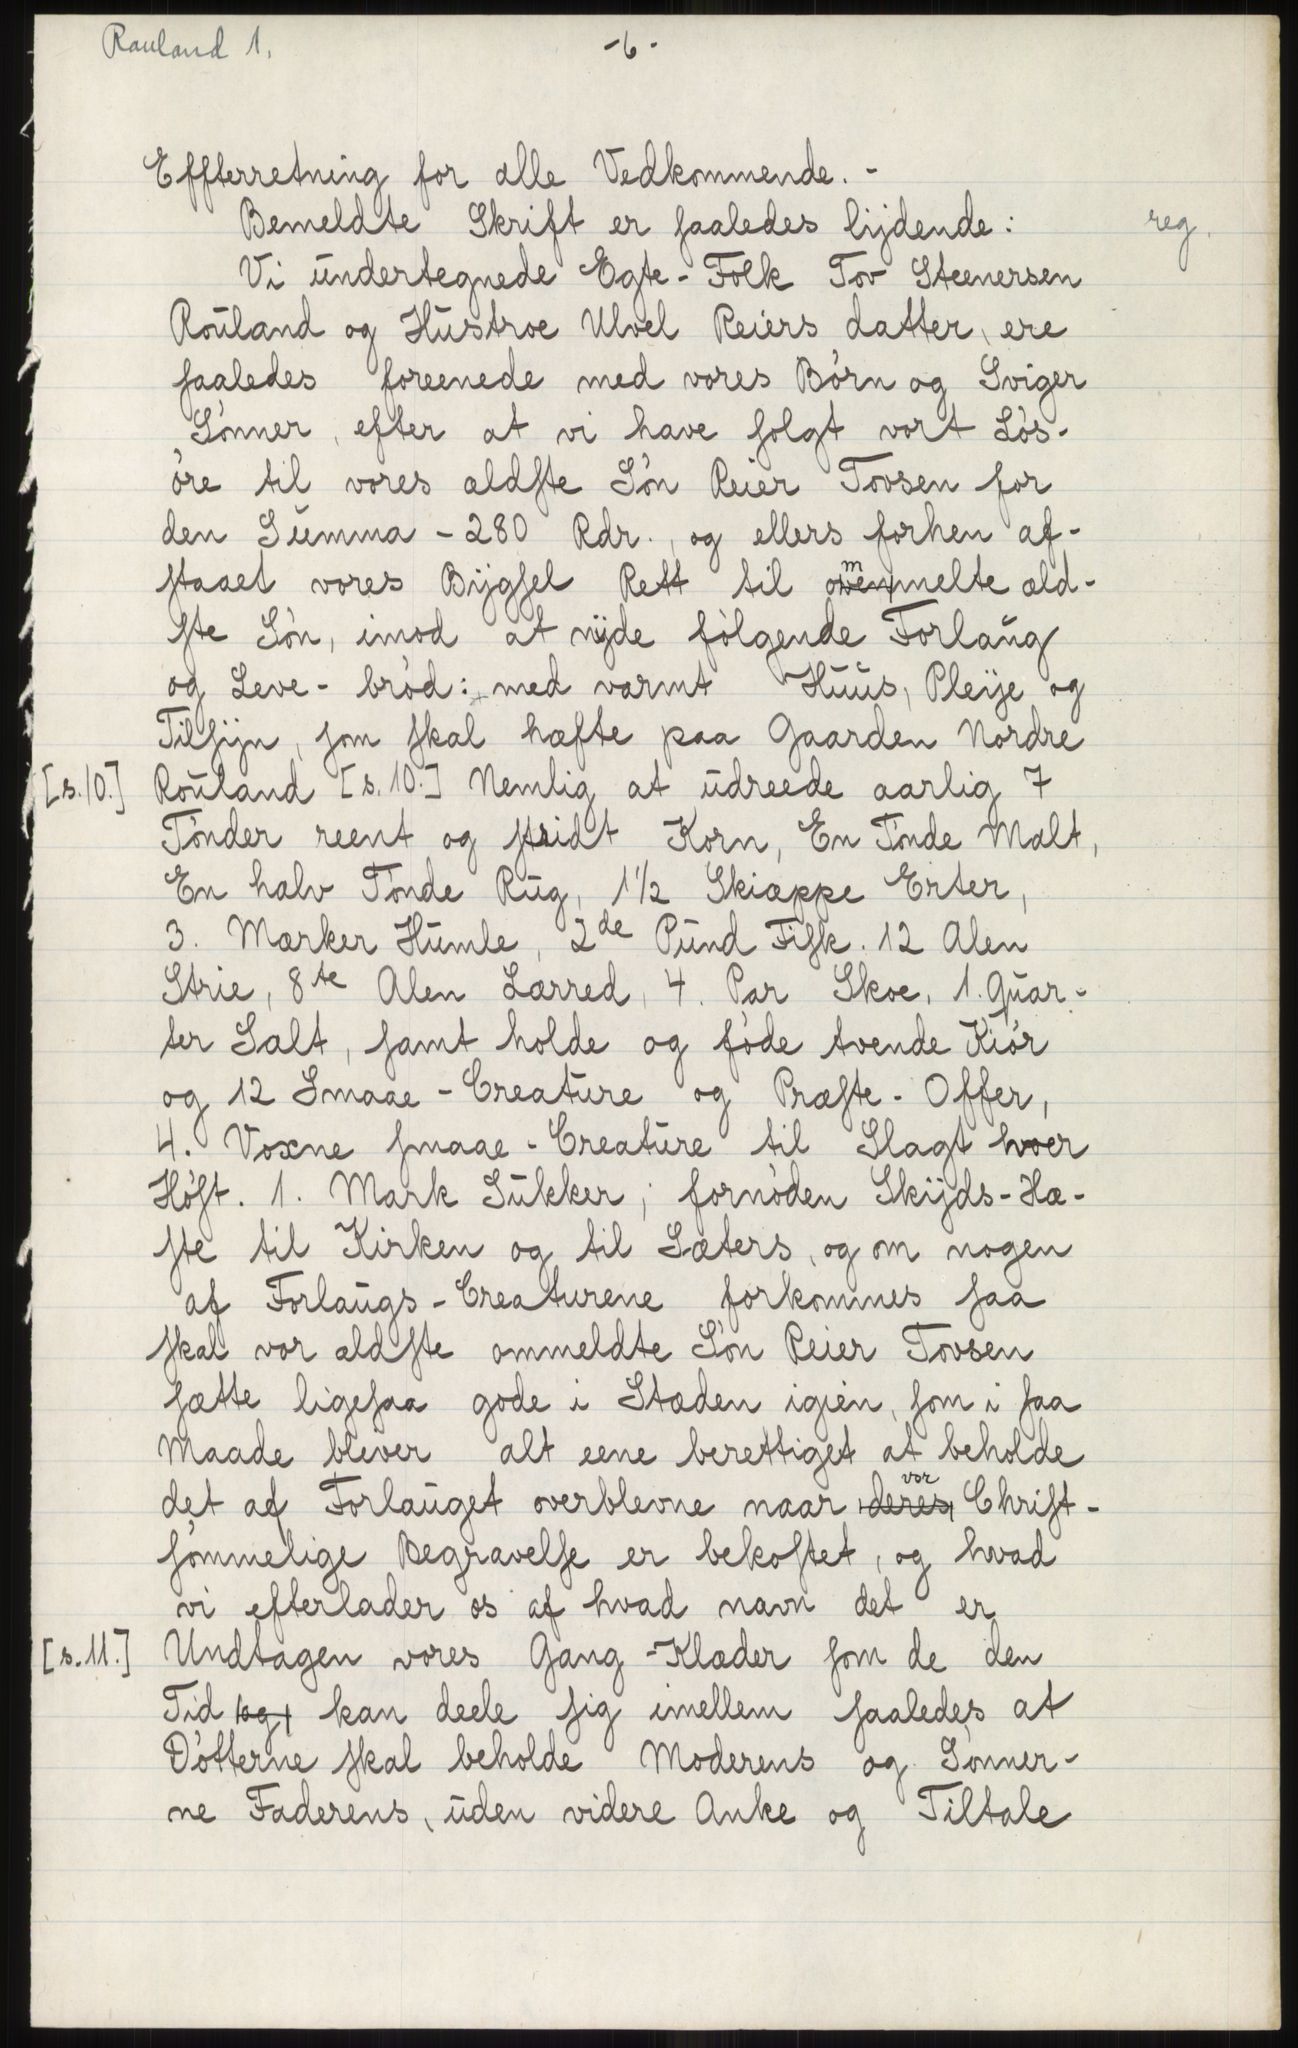 Rauland 1.
-6-
Effterretning for alle Vedkommende. -
Bemeldte Skrift er saaledes lijdende:
reg.
Vi undertegnede Egte-Folk Tov Steenersen
Rouland og Hustroe Ulvel Reiers datter, ere
saaledes foreenede med vores Børn og Sviger
Sønner, efter at vi have solgt vort Løs-
øre til vores ældste Søn Reier Tovsen for
den Summa - 280 Rdr., og ellers forhen af-
staaet vores Bijgsel Rett til
melte æld-
ste Søn, imod at nyde følgende Forlaug
og Leve-brød: med varmt Huus, Pleije og
Tilsijn, som skal hæfte paa Gaarden Nordre
[s.10.] Rouland [s.10.] Nemlig at udreede aarlig 7
Tønder reent og stridt Korn, En Tønde Malt,
En halv Tønde Rug, 1½ Skiæppe Erter,
3. Marker Humle, 2de Pund Fisk. 12 Alen
Strie, 8te Alen Lærred, 4. Par Skoe, 1. Quar-
ter Salt, samt holde og føde tvende Kiør
og 12 Smaae-Creature og Præste-Offer,
4. Voxne smaae-Creature til Slagt hver
Høst. 1. Mark Sukker; fornøden Skijds-Hæ-
ste til Kirken og til Sæters, og om nogen
af Forlaugs-Creaturene forkommes saa
skal vor ældste ommeldte Søn Reier Tovsen
sætte ligesaa gode i Stæden igien, som i saa
Maade bliver alt eene berettiget at beholde
vor
det af Forlauget overblevne naar deres Christ-
sømmelige Begravelse er bekostet, og hvad
vi efterlader os af hvad navn det er
[s.11.] Undtagen vores Gang-Klæder som de den
Tid og kan deele sig imellem saaledes at
Døtterne skal beholde Moderens og Sønner-
ne Faderens, uden videre Anke og Tiltale